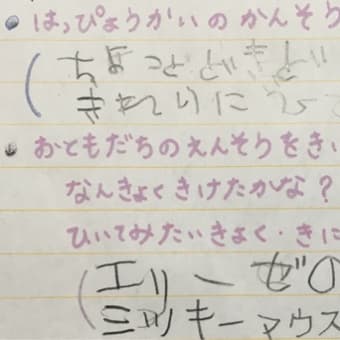 • はっぴょうかいのかんそう
(ちょっとどきど
• おともだちのえんそうをきい
なんきょくきけたかな？
ひいてみたいきょく・きに
(エリーゼの
ミッキーマウス